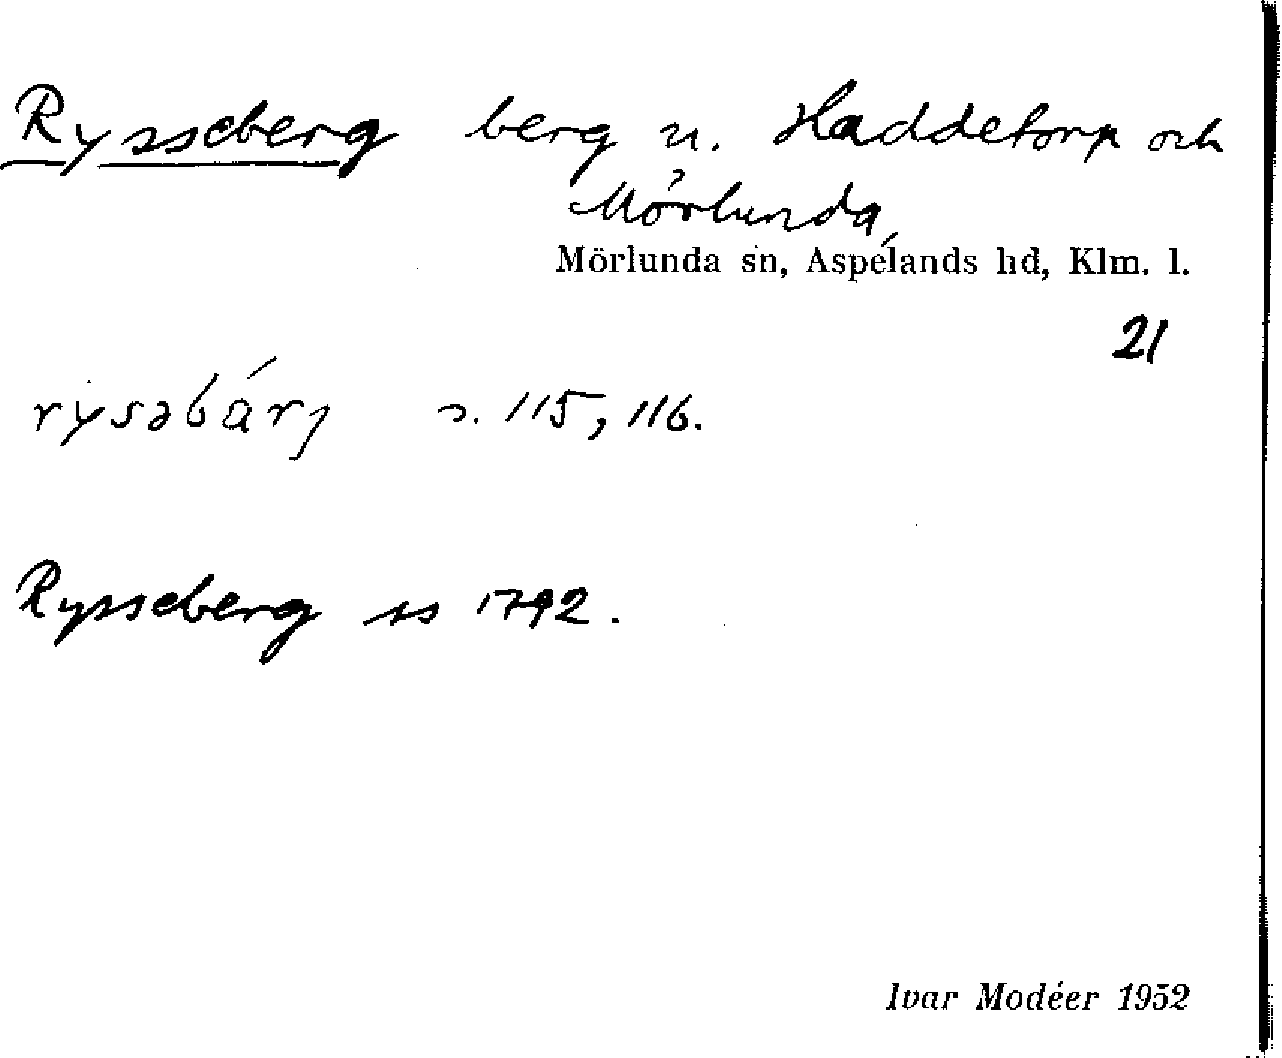 Rysseberg berg u. Haddetorp och
Mörlunda,
Mörlunda sn, Aspelands hd, Klm. l.
21
rysəbárj s. 115, 116.
Rysseberg ss 1792.
Ivar Modéer 1952